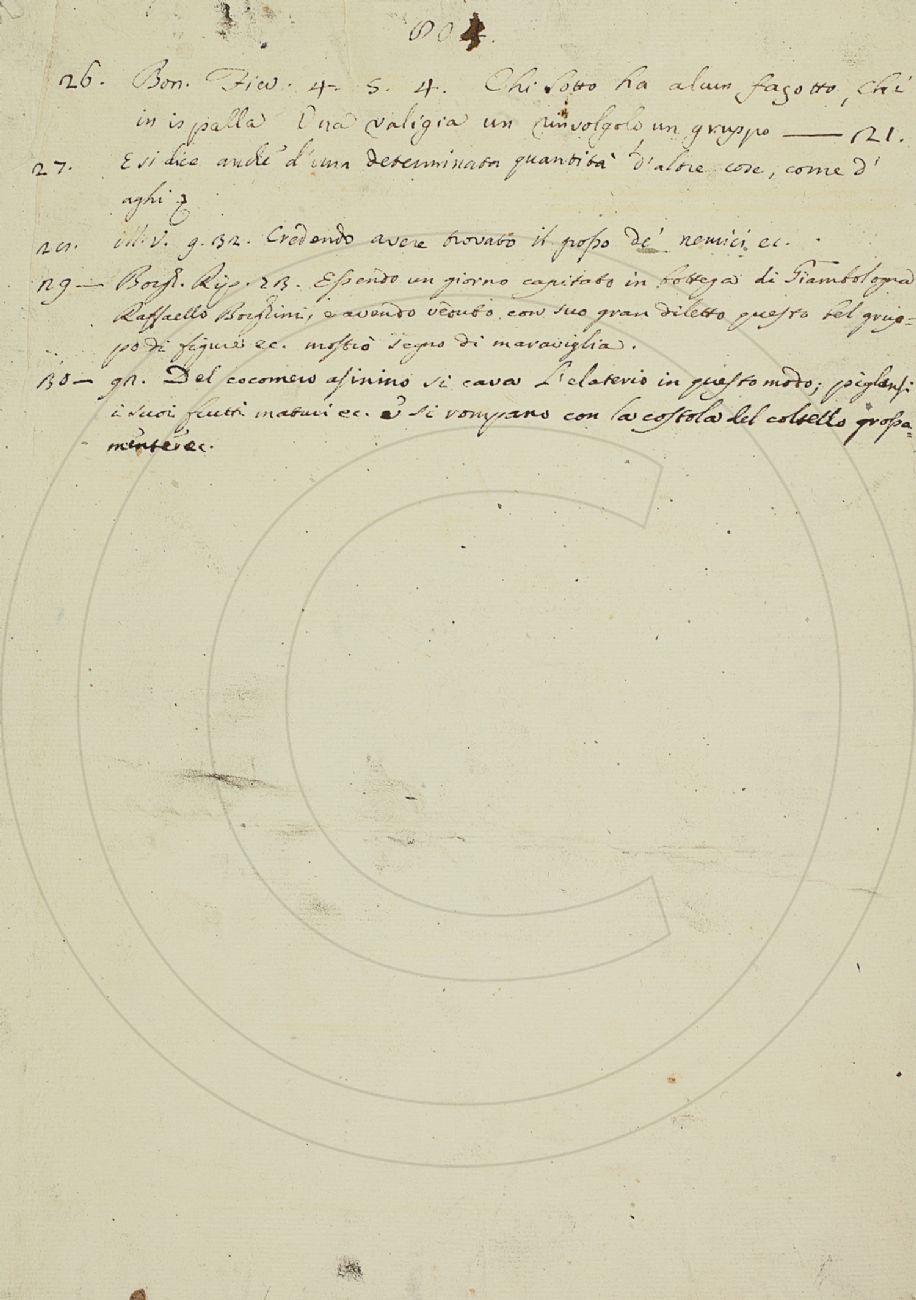 804.
26. Bon. Fier. 4. 5. 4. Chi sotto ha alcun fagotto, chi
in ispalla Una valigia un rinvolgolo un gruppo — 21.
27. E si dice anche d'una determinata quantità d'altre cose, come d'
aghi
28. M. V. 9. 32. Credendo avere trovato il posso de' nemici ec.
29 — Borgh. Rip. 23. Essendo un giorno capitato in bottega di Giambologna
Raffaello Borghini, e avendo veduto con suo gran diletto questo bel grup=
po di figure ec. mostrò segno di maraviglia.
30 — 92. Del cocomero asinino si cava l'elaterio in questo modo; piglansi
i suoi frutti maturi ec. e si rompano con la costola del coltello grossa=
mente ec.